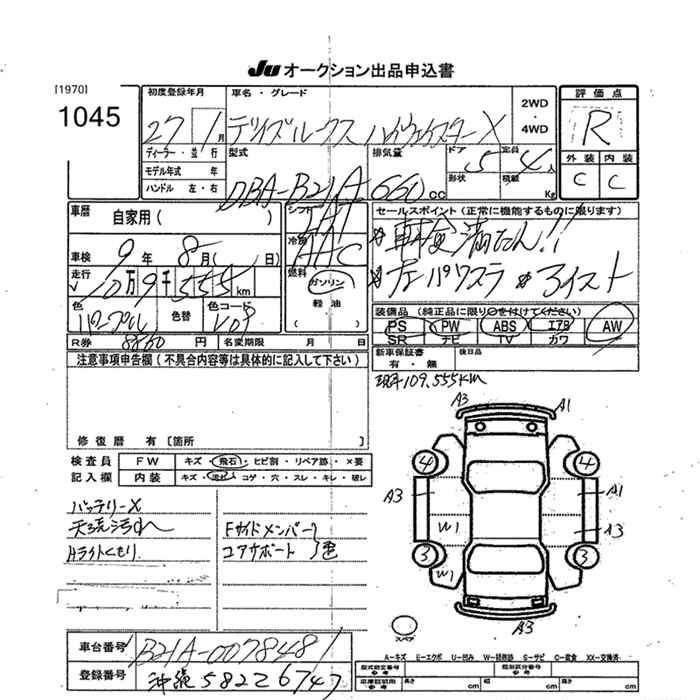 Ju オークション出品申込書
[1970]
1045
初度登録年月
27 1月
車名・グレード
デイズルークス ハイウェイスターX
2WD
・
4WD
評価点
R
ディーラー・並行
モデル年式 年
ハンドル 左・右
型式
DBA-B21A
排気量
660cc
ドア
5
定員
4人
形状
積載
Kg
外装 内装
C C
車歴
自家用( )
シフト
冷房
AAC
セールスポイント(正常に機能するものに限ります)
※車検満たん!!
車検
9年 8月( 日)
走行
10万9千555km
燃料
ガソリン
・
軽油
・
( )
装備品(純正品に限り○を付けてください)
PS PW ABS エアB AW
SR ナビ TV カワ
色
色替
色コード
R券 8860円
名変期限 月 日
新車保証書
有・無
後日品
注意事項申告欄(不具合内容等は具体的に記入して下さい)
現車109,555km
修復歴 有[箇所 ]
検査員
記入欄
FW キズ・飛石・ヒビ割・リペア跡・×要
内装 キズ・汚れ・コゲ・穴・スレ・キレ・破レ
バッテリーX
天張汚れ
Hライトくもり
Fサイドメンバー
コアサポート
A3 A1
4 4
A3 A1
W1 A3
3 3
W1
スペア
A3
車台番号
B21A-0078481
登録番号
沖縄 582 こ 6747
A-キズ E-エクボ U-凹み W-補修跡 S-サビ C-腐食 XX-交換済
型式指定番号
参考
類別区分番号
参考
車庫証明用
参考
長さ cm 幅 cm 高さ cm